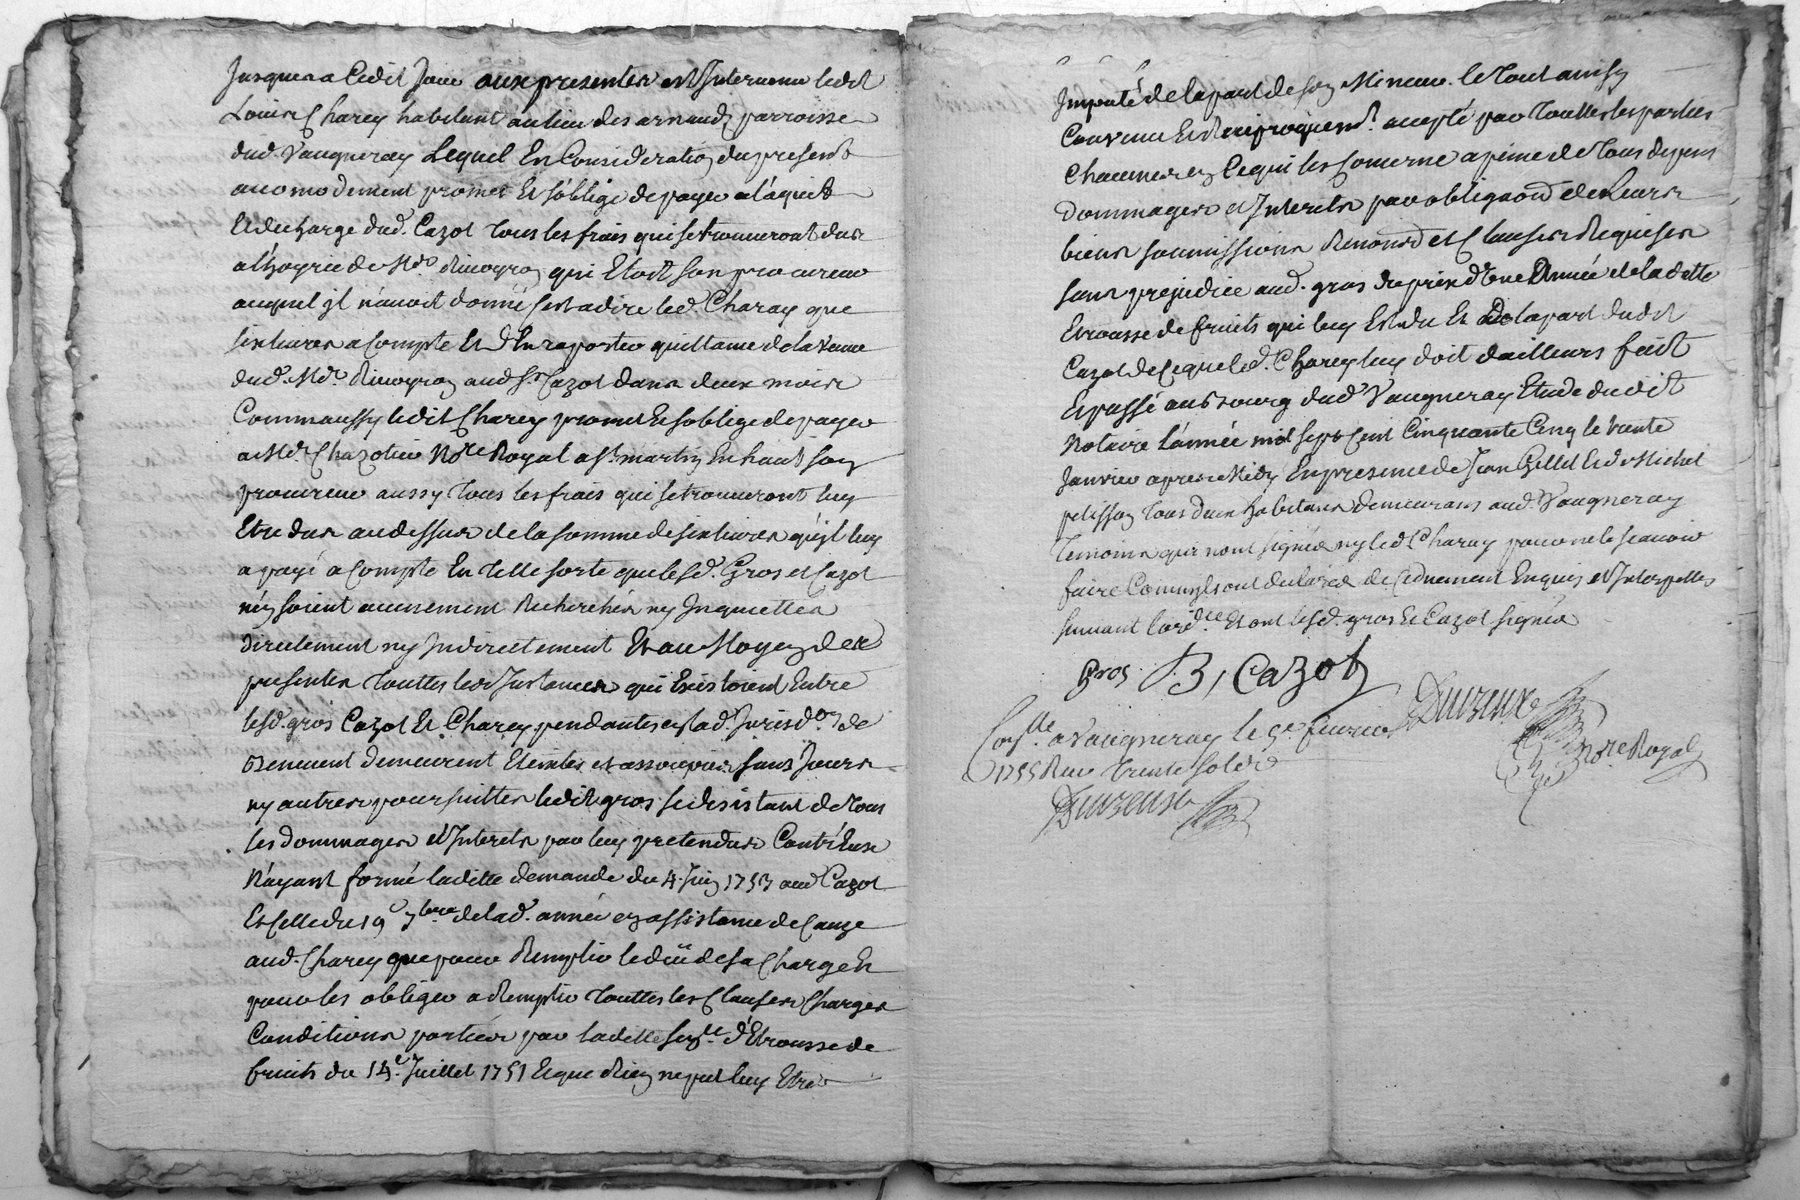 Jusques a Cedit Jour aux presentes est Intervenu ledit
Louis Charey habitant au lieu des arnauds parroisse
dud. Vaugneray Lequel En Consideration du present
accomodement promet Et s'oblige de payer a l'aquit
Et decharge dud. Cazot tous les frais qui se trouveront dus
a l'hoyrie de Me Rivoyron qui Etoit son procureur
auquel jl n'avoit donné c'est a dire led. Charay que
six livres a Compte Et d'En raporter quittance de la veuve
dud. Me Rivoyron aud. Sr Cazot dans deux mois
Comm'aussy ledit Charey promet Et s'oblige de payer
a Me Chazotier Nore Royal a St martin En haut son
procureur aussy tous les frais qui se trouveront luy
Etre dus au dessus de la somme de six livres qu'jl luy
a payé a Compte En telle sorte que lesd. Gros et Cazot
n'en soient aucunement Recherchés ny Inquiettés
directement ny Indirectement Et au Moyen des
presentes touttes les Instances qui Existoient Entre
lesd. gros Cazot Et Charey pendantes en lad. Jurisdon de
demeurent Eteintes et assoupies sans Jours
ny autres poursuittes ledit gros se desistant de tous
les dommages et Interets par luy pretendus Contr'Eux
N'ayant formé laditte demande du 4 Juin 1753 aud Cazot
Et Celle du 19e 7bre de lad. année en assistance de Cause
aud. Charey que pour Remplir le dû de sa Charge Et
pour les obliger a Remplir touttes les Clauses Charges
Conditions portées par laditte d'Etrousse de
fruits du 14e Juillet 1751 Et que Rien ne put luy Etre
Imputé de la part de son Mineur. le tout ainsy
Convenu Et Reciproquemt. accepté par touttes les parties
Chacune en Ce qui les Concerne a peine de tous depens
Dommages et Interets par obligaon de Leurs
biens soumissions Renonon et Clauses Requises
sans prejudice aud. gros du prix d'une Année de laditte
Etrousse de fruits qui luy Est du Et de la part dudit
Cazot de Ce que led. Charey luy doit d'ailleurs fait
Et passé au bourg dud. Vaugneray Etude dudit
Notaire L'année mil sept Cent Cinquante Cinq le trente
Janvier apres Midy En presence de Jean Gillet Et de Michel
pelisson tous deux habitans demeurans aud. Vaugneray
temoins qui n'ont signés ny led. Charay pour ne le scavoir
faire Comm'jls ont declarés de Ce duement Enquis et Interpellés
suivant L'ordce. Et ont lesd. gros Et Cazot signés
Gros. B, Cazot
Conlle a Vaugneray le 9e fevrier
1755 Recu trente sols
Nore Royal